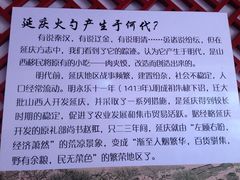 延庆火勺产生于何代？
有说秦汉，有说辽金，有说明清……英诸说纷纭，但在
延庆方志中，我们看到了它的踪迹。认为它产生于明代，是山
西移民将原有的小吃——肉夹馍，改造而创造出来的。
明代前，延庆地区战事频繁，建置纷杂，社会不稳定，人
口经常流动。明永乐十一年（1413年）明成祖朱棣下诏，迁大
批山西人开发延庆，并采取了一系列措施，是延庆得到较长
时期的稳定，促进了农业发展和集市贸易活跃。据经延庆
开发的原礼部侍书赵羾，只二三年间，延庆就由“左顾右盼，
经济萧然”的荒凉景象，变成“渐至人烟繁华，百货骈集，
野有余粮，民无菜色”的繁荣地区了。